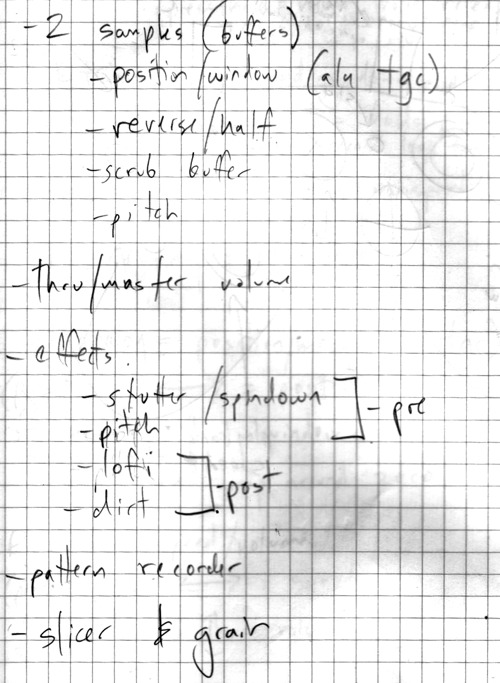 - 2 samples (buffers)
- position/window (alu tgc)
- reverse/half
- scrub buffer
- pitch
- thru/master volume
- effects
- stutter/spindown ] - pre
- pitch
- lofi ] - post
- dirt
- pattern recorder
- slicer & grain